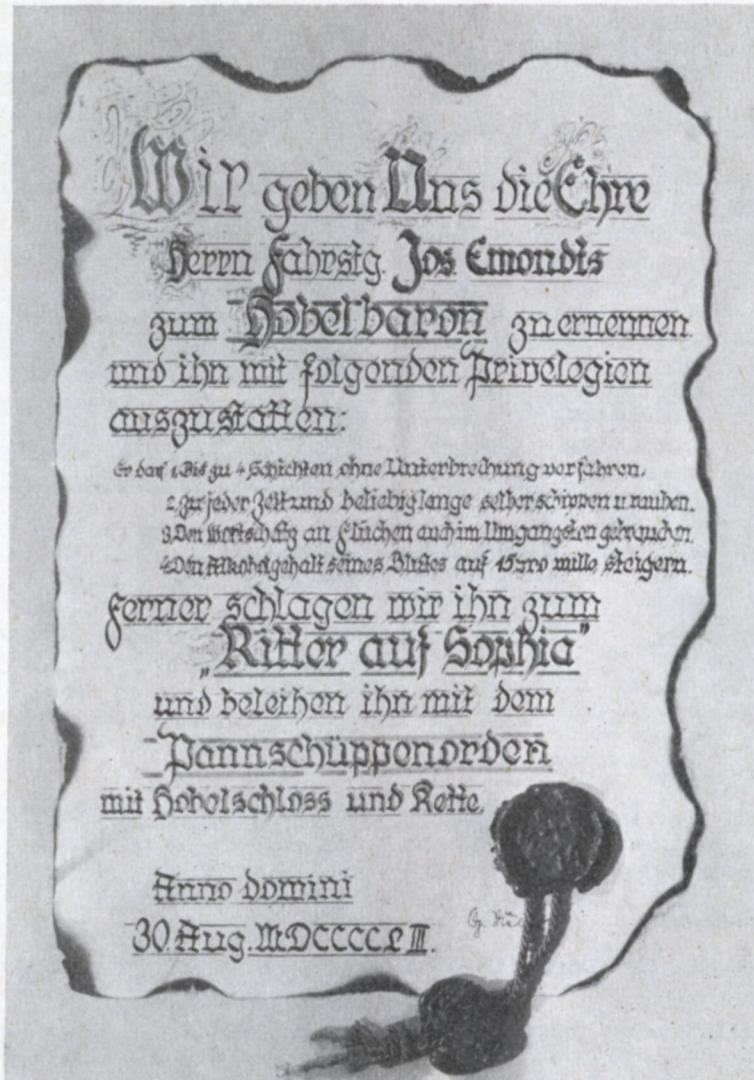 Wir geben Uns die Ehre
Herrn Fahrstg. Jos. Emondts
zum Hobelbaron zu ernennen
und ihn mit folgenden Privelegien
auszustatten:
Er darf 1. Bis zu 4 Schichten ohne Unterbrechung verfahren.
2. Zu jeder Zeit und beliebig lange selber schippen u rauben.
3. Den Wortschatz an Flüchen auch im Umgangston gebrauchen.
4. Den Alkoholgehalt seines Blutes auf 15 pro mille steigern.
Ferner schlagen wir ihn zum
„Ritter auf Sophia"
und beleihen ihn mit dem
Pannschüppenorden
mit Hobelschloss und Kette.
Anno domini
30. Aug. MDCCCCLIII.